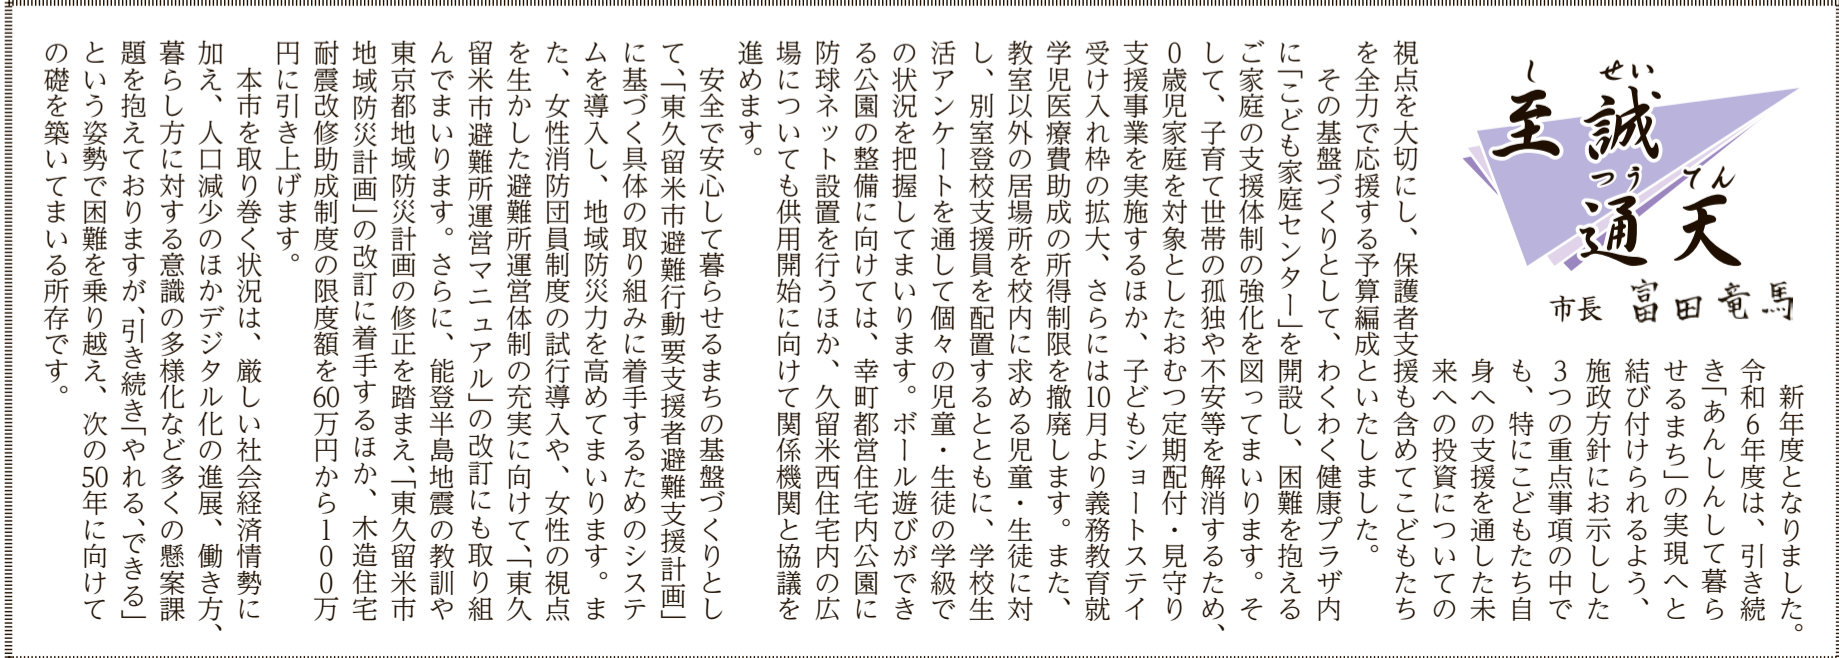 至誠
しせい
通天
つうてん
市長 富田竜馬
　新年度となりました。
令和６年度は、引き続
き「あんしんして暮ら
せるまち」の実現へと
結び付けられるよう、
施政方針にお示しした
３つの重点事項の中で
も、特にこどもたち自
身への支援を通した未
来への投資についての
視点を大切にし、保護者支援も含めてこどもたち
を全力で応援する予算編成といたしました。
　その基盤づくりとして、わくわく健康プラザ内
に「こども家庭センター」を開設し、困難を抱える
ご家庭の支援体制の強化を図ってまいります。そ
して、子育て世帯の孤独や不安等を解消するため、
０歳児家庭を対象としたおむつ定期配付・見守り
支援事業を実施するほか、子どもショートステイ
受け入れ枠の拡大、さらには10月より義務教育就
学児医療費助成の所得制限を撤廃します。また、
教室以外の居場所を校内に求める児童・生徒に対
し、別室登校支援員を配置するとともに、学校生
活アンケートを通して個々の児童・生徒の学級で
の状況を把握してまいります。ボール遊びができ
る公園の整備に向けては、幸町都営住宅内公園に
防球ネット設置を行うほか、久留米西住宅内の広
場についても供用開始に向けて関係機関と協議を
進めます。
　安全で安心して暮らせるまちの基盤づくりとし
て、「東久留米市避難行動要支援者避難支援計画」
に基づく具体の取り組みに着手するためのシステ
ムを導入し、地域防災力を高めてまいります。ま
た、女性消防団員制度の試行導入や、女性の視点
を生かした避難所運営体制の充実に向けて、「東久
留米市避難所運営マニュアル」の改訂にも取り組
んでまいります。さらに、能登半島地震の教訓や
東京都地域防災計画の修正を踏まえ、「東久留米市
地域防災計画」の改訂に着手するほか、木造住宅
耐震改修助成制度の限度額を60万円から１００万
円に引き上げます。
　本市を取り巻く状況は、厳しい社会経済情勢に
加え、人口減少のほかデジタル化の進展、働き方、
暮らし方に対する意識の多様化など多くの懸案課
題を抱えておりますが、引き続き「やれる、できる」
という姿勢で困難を乗り越え、次の50年に向けて
の礎を築いてまいる所存です。